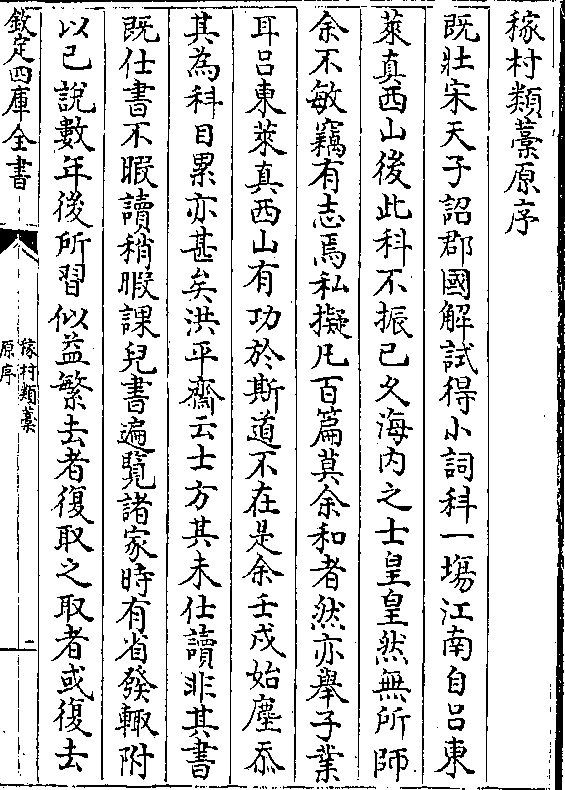 稼村類藁原序
既壯宋天子詔郡國解試得小詞科一塲江南自吕東
萊真西山後此科不振已久海内之士皇皇然無所師
余不敏竊有志焉私擬凡百篇莫余和者然亦舉子業
耳吕東萊真西山有功於斯道不在是余壬戌始塵忝
其為科目累亦甚矣洪平齋云士方其未仕讀非其書
既仕書不暇讀稍暇課兒書遍覽諸家時有省發輙附
以已說數年後所習似益繁去者復取之取者或復去
欽定四庫全書
稼村類藁
原序
一